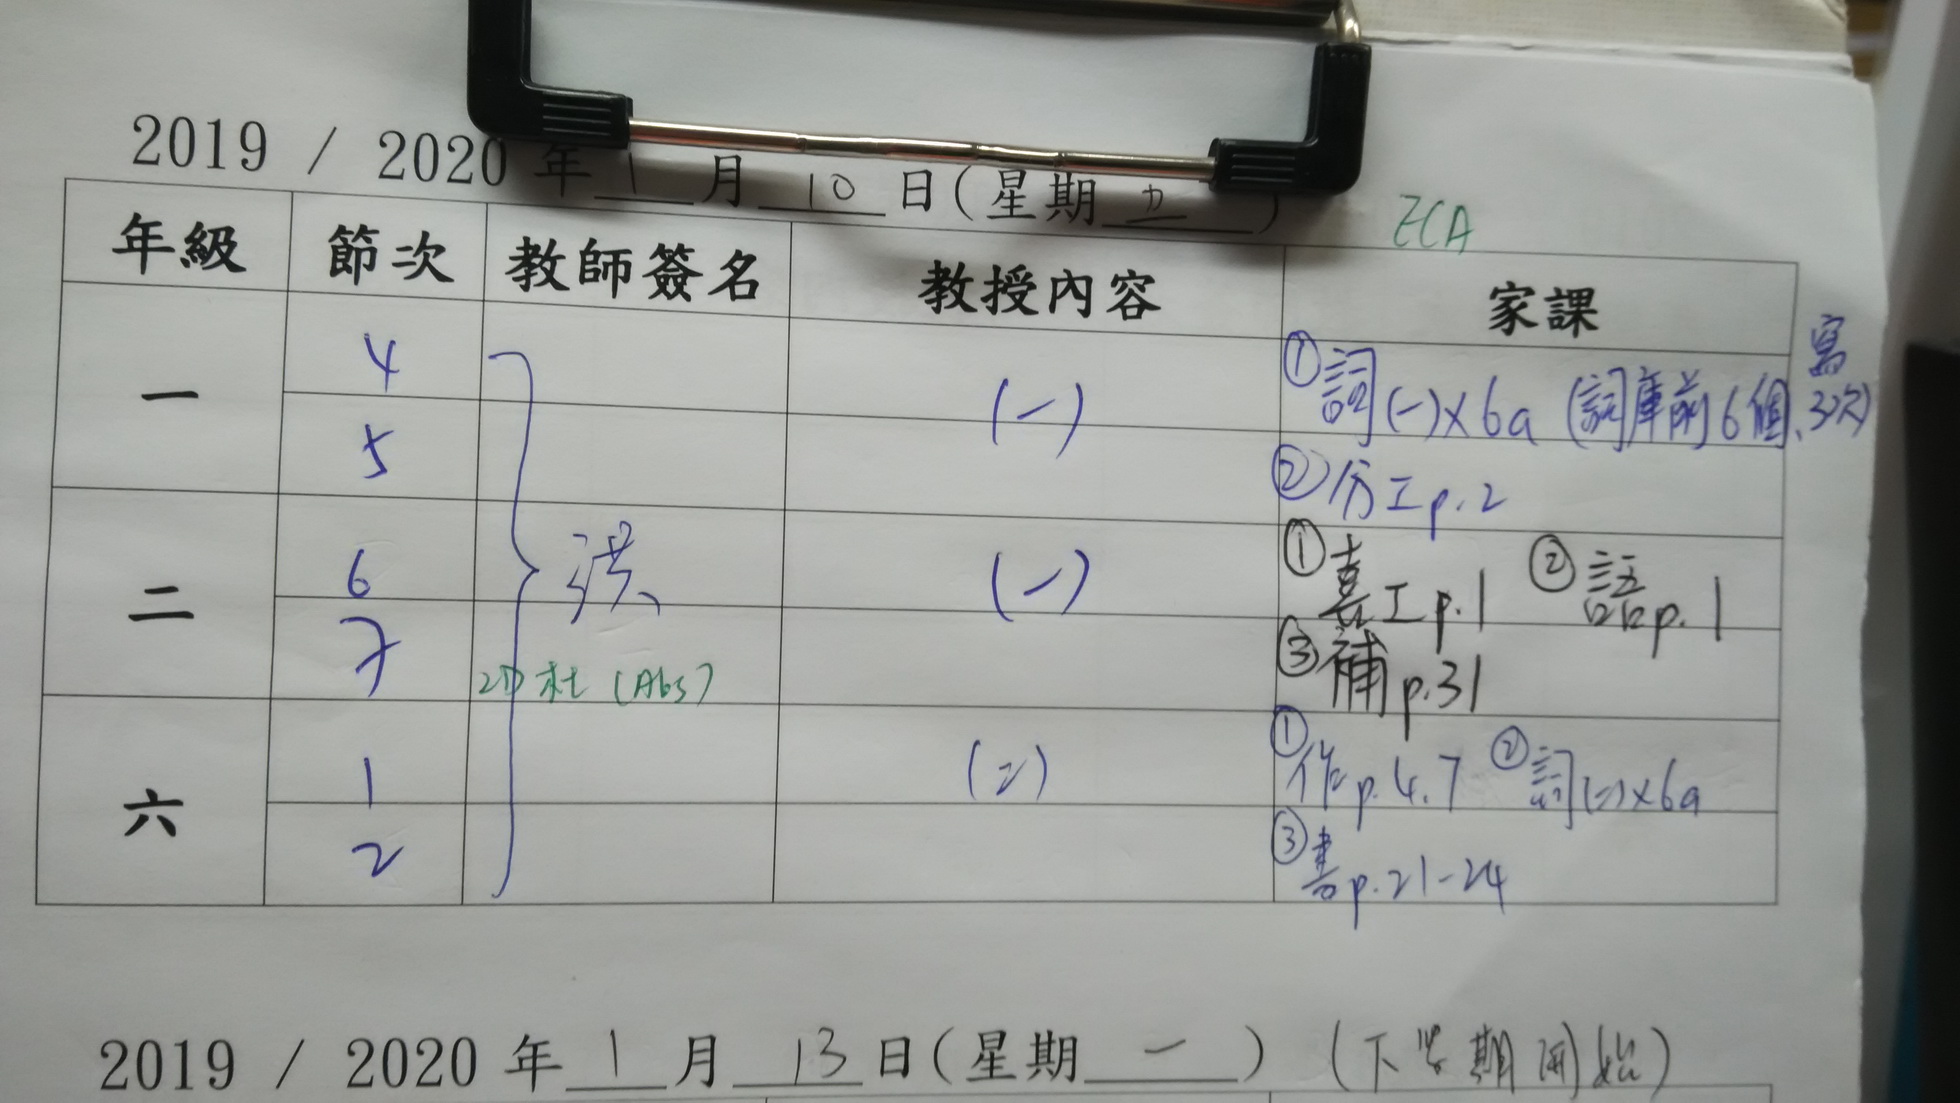 2019 / 2020 年 1 月 10 日(星期 五 )
ECA
年級 節次 教師簽名 教授內容 家課
一 4 (一) ①詞(一)x6a (詞庫前6個、寫3次)
5 ②仿工p.2
二 6 洪 (一) ①喜工p.1 ②話p.1
7 2D杜(Abs) ③補p.31
六 1 (二) ①作p.4.7 ②詞(二)x6a
2 ③書p.21-24
2019 / 2020 年 1 月 13 日(星期 一 ) (下學期開始)